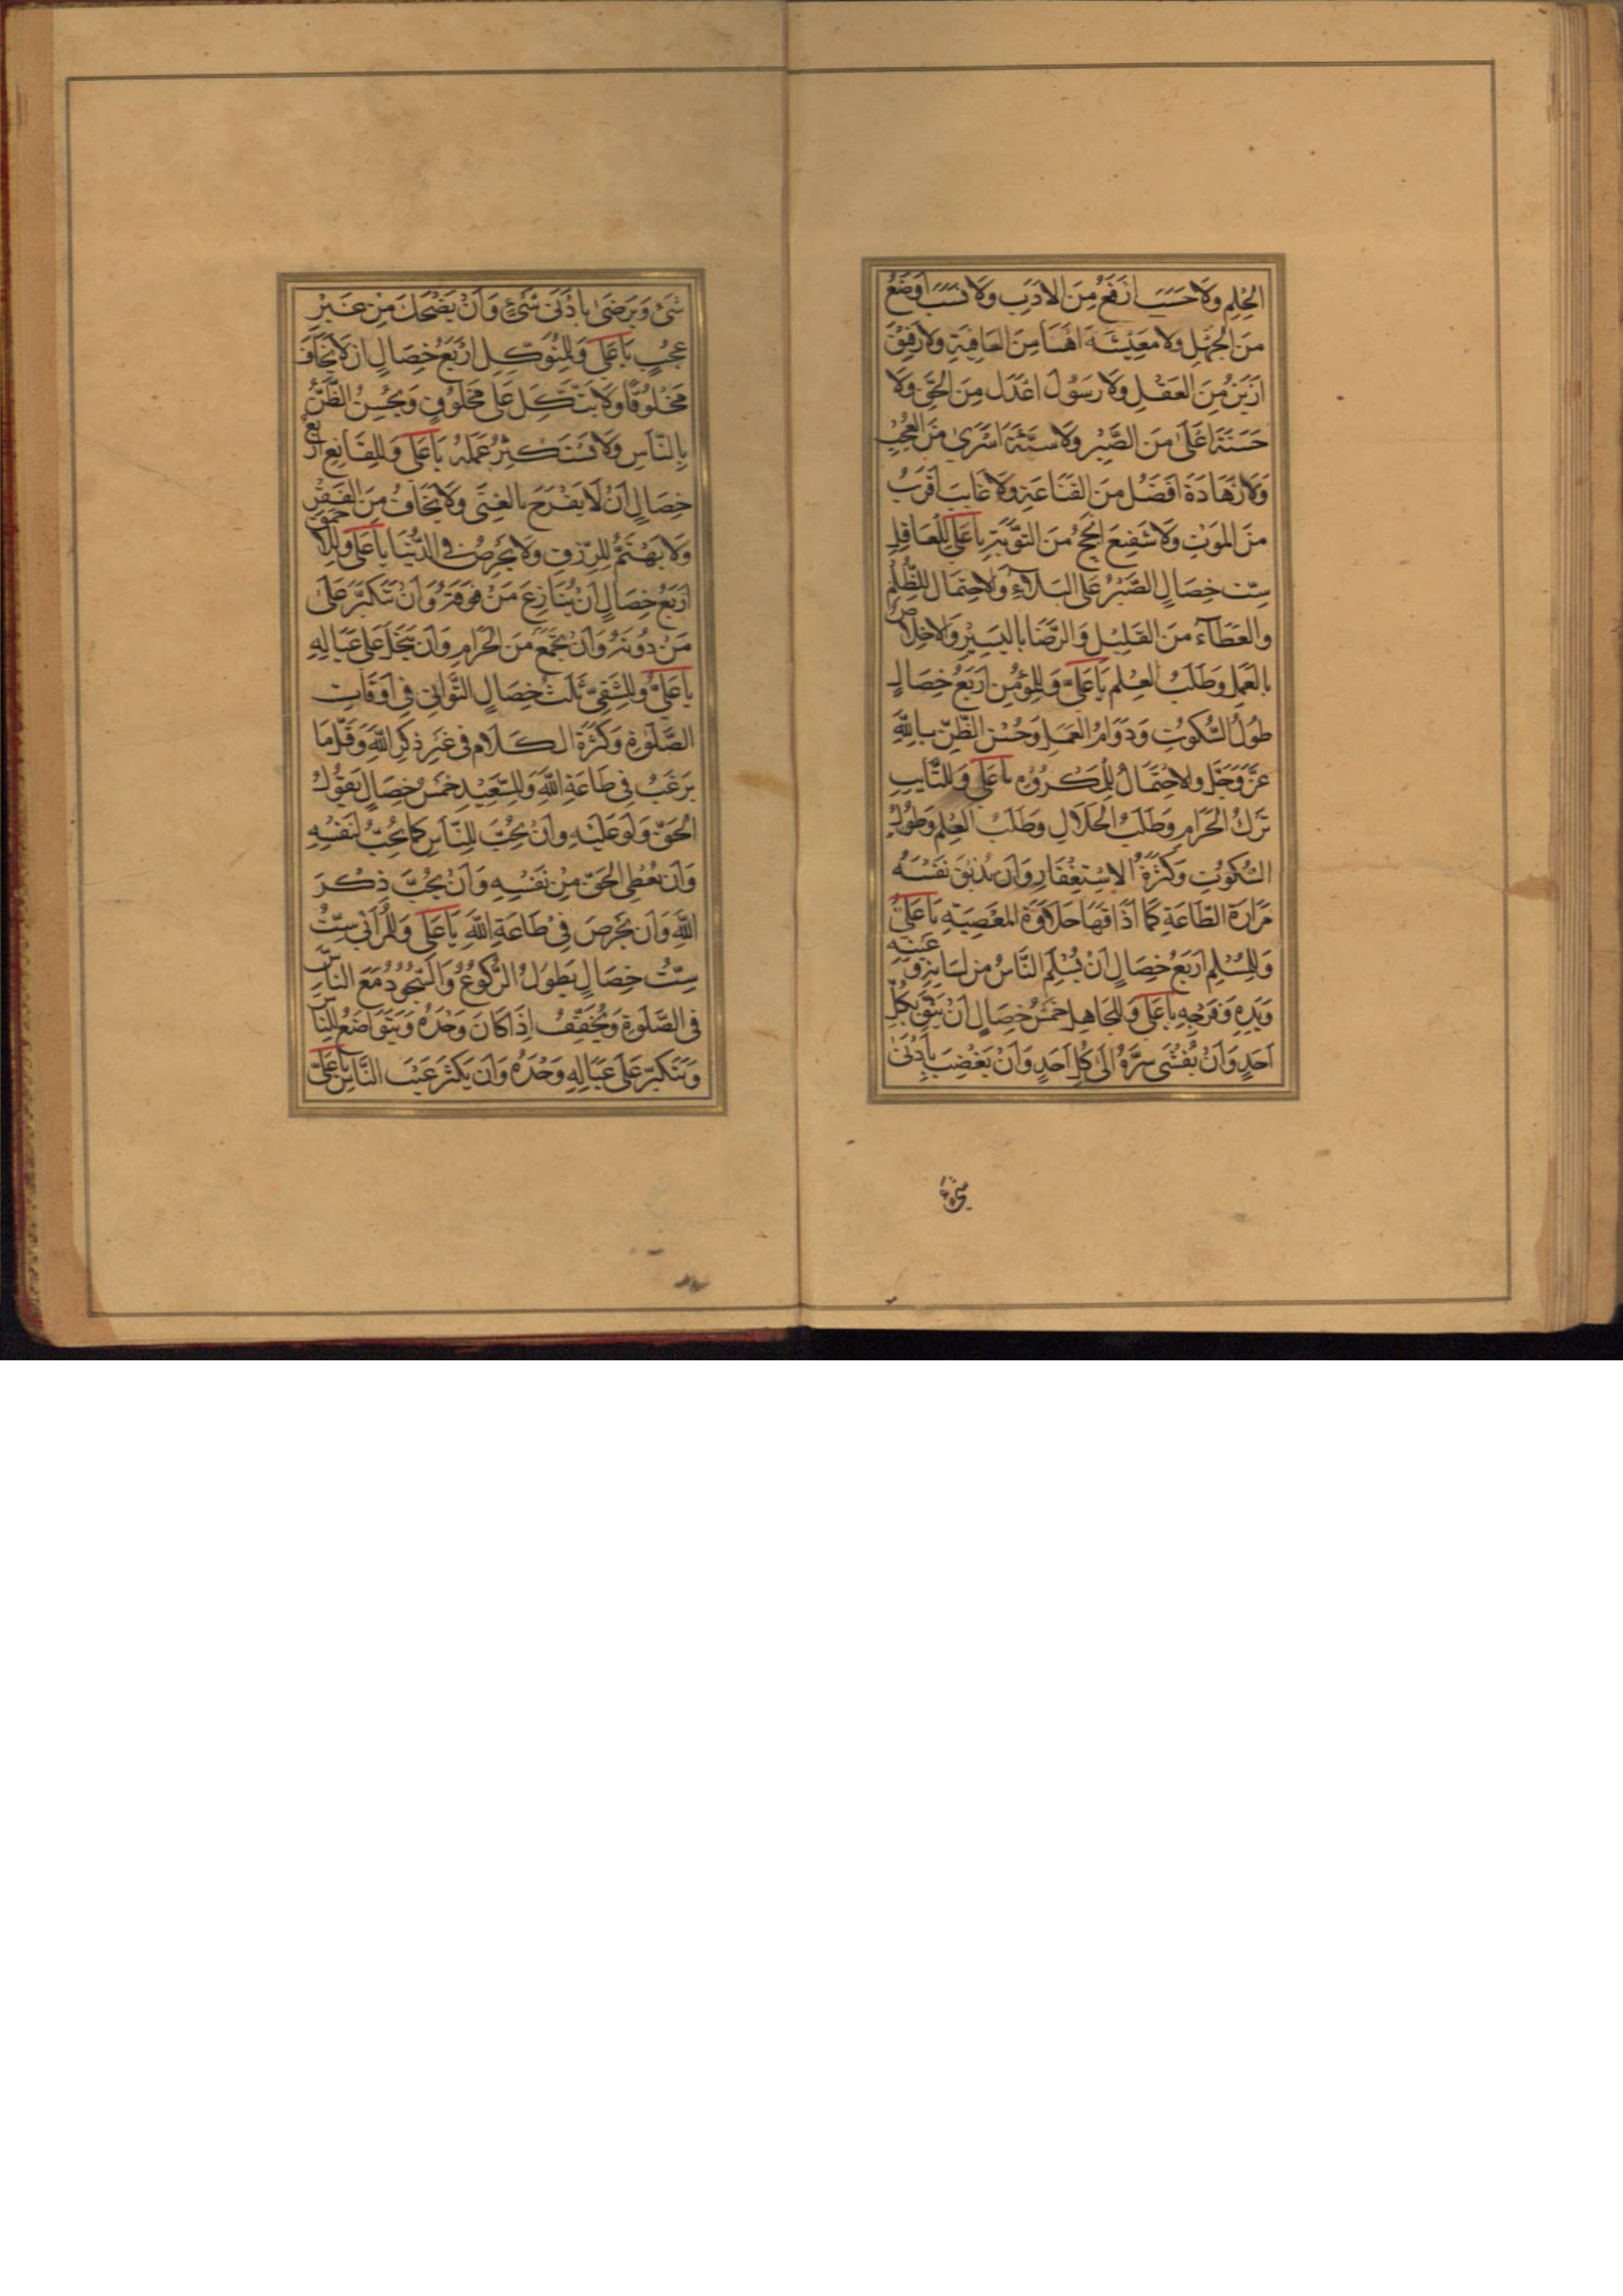 الحِلْمِ وَلَا حَسَبَ اَرْفَعُ مِنَ الاَدَبِ وَلَا نَسَبَ اَوْضَعُ
مِنَ الجَهْلِ وَلَا مَعِيْشَةَ اَهْنَأُ مِنَ العَافِيَةِ وَلَا رَفِيْقَ
اَزْيَنُ مِنَ العَقْلِ وَلَا رَسُوْلَ اَعْدَلَ مِنَ الحَقِّ وَلَا
حَسَنَةَ اَعْلَى مِنَ الصَّبْرِ وَلَا سَيِّئَةَ اَسْرَى مِنَ العُجْبِ
وَلَا زَهَادَةَ اَفْضَلُ مِنَ القَنَاعَةِ وَلَا غَايِبَ اَقْرَبُ
مِنَ المَوْتِ وَلَا شَفِيْعَ اَنْجَحُ مِنَ التَّوْبَةِ يَا عَلِي لِلْعَاقِلِ
سِتّ خِصَالٍ الصَّبْرُ عَلَى البَلَاءِ وَالاحْتِمَال لِلظُّلْمِ
وَالعَطَآءُ مِنَ القَلِيْلِ وَالرِّضَا بِاليَسِيْرِ وَالاخِلَاص
بِالعَمَلِ وَطَلَبُ العِلْمِ يَا عَلِيّ وَلِلمُؤْمِنِ اَرْبَعُ خِصَالٍ
طُوْلُ السُّكُوْتِ وَدَوَامُ العَمَلِ وَحُسْنُ الظَّنِّ بِاللّٰهِ
عَزَّ وَجَلَّ وَالاحْتِمَالُ لِلْمَكْرُوْهِ يَا عَلِي وَلِلتَّايِبِ
تَرْكُ الحَرَامِ وَطَلَبُ الحَلَالِ وَطَلَبُ العِلْمِ وَطُوْلُ
السُّكُوْتِ وَكَثْرَةُ الاِسْتِغْفَارِ وَاَن يُذِيْقَ نَفْسَهُ
مَرَارَةَ الطَّاعَةِ كَمَا اَذَاقَهَا حَلَاوَةَ المَعْصِيَةِ يَا عَلِيُّ
وَلِلْمُسْلِمِ اَرْبَعُ خِصَالٍ اَنْ يُسْلِمَ النَّاسُ مِن لِسَانِهِ وَعَيْنِهِ
وَيَدِهِ وَفَرْجِهِ يَا عَلِي وَلِلْجَاهِلِ خَمْسُ خِصَالٍ اَنْ يَثِقَ بِكُلِّ
اَحَدٍ وَاَنْ يُفْشَى سِرَّهُ اِلَى كُلِّ اَحَدٍ وَاَنْ يَغْضِبَ بِاَدْنَى
شَىْءٍ
شَىْ وَيَرْضَى بِاَدْنَى شَىْءٍ وَاَنْ يَضْحَكَ مِنْ غَيْرِ
عَجَبٍ يَا عَلِي وَلِلْمُتَوَكِّلِ اَرْبَعُ خِصَالٍ اَن لَا يَخَافَ
مَخْلُوْقًا وَلَا يَتَّكِلَ عَلَى مَخْلُوْقٍ وَيُحْسِنُ الظَّنَّ
بِالنَّاسِ وَلَا يَسْتَكْثِرُ عَمَلَهُ يَا عَلِي وَلِلْقَانِعِ اَرْبَع
خِصَالٍ اَنْ لَا يَفْرَحَ بِالغِنَى وَلَا يَخَافُ مِنَ الفَقْرِ
وَلَا يَهْتَمُّ لِلرِّزْقِ وَلَا يَحْرِصُ فِى الدُّنْيَا يَا عَلِي وَلِلاَحْمَقِ
اَرْبَعُ خِصَالٍ اَنْ يُنَازِعَ مَنْ فَوْقَهُ وَاَنْ تَكَبَّرَ عَلَى
مَنْ دُوْنَهُ وَاَنْ يَجْمَعَ مِنَ الحَرَامِ وَاَن يَبْخَلَ عَلَى عِيَالِهِ
يَا عَلِيُّ وَلِلشَّقِىِّ ثَلَثُ خِصَالٍ التَّوَانِى فِى اَوْقَاتِ
الصَّلٰوةِ وَكَثْرَةُ الكَلَامِ فِى غَيْرِ ذِكْرِ اللّٰهِ وَقَلَّمَا
يَرْغَبُ فِى طَاعَةِ اللّٰهِ وَلِلسَّعِيْدِ خَمْسُ خِصَالٍ يَقُوْلُ
الحَقَّ وَلَوْ عَلَيْهِ وَاَنْ يُحِبَّ لِلنَّاسِ كَمَا يُحِبُّ لِنَفْسِهِ
وَاَن يُعْطِى الحَقَّ مِنْ نَفْسِهِ وَاَنْ يُحِبَّ ذِكْرَ
اللّٰهِ وَاَن يَحْرِصَ فِىْ طَاعَةِ اللّٰهِ يَا عَلِي وَلِلْمُرَآئِى سِتُّ
سِتُّ خِصَالٍ يَطُوْلُ الرُّكُوْعُ وَالسُّجُوْدُ مَعَ النَّاسِ
فِى الصَّلٰوةِ وَيُخَفِّفُ اِذَا كَانَ وَحْدَهُ وَيَتَوَاضَعُ لِلنَّاسِ
وَيَتَكَبَّرُ عَلَى عِيَالِهِ وَحْدَهُ وَاَن يَكْثَرَ عَيْبَ النَّاسِ يَا عَلِيُّ